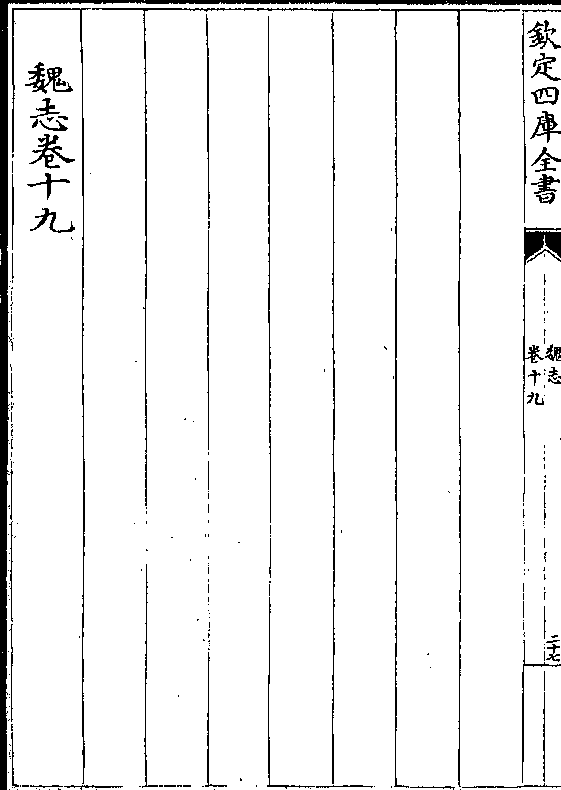 欽定四庫全書
魏志
卷十九
二十七
魏志卷十九